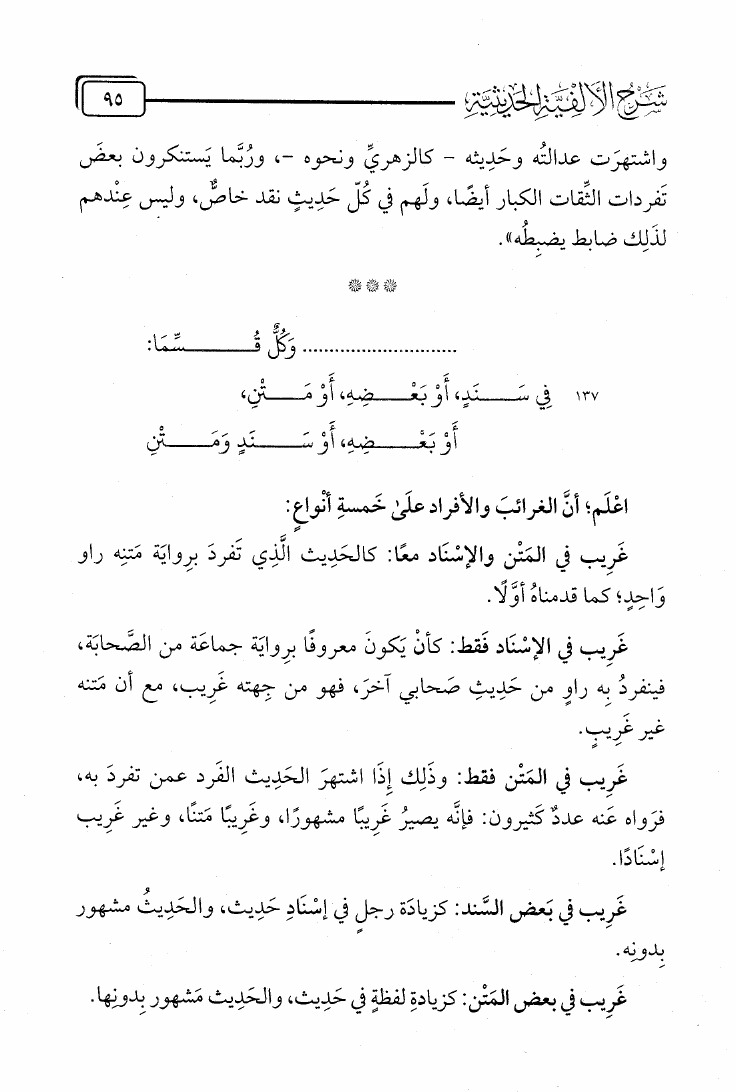 شَرْحُ الأَلْفِيَّةِ الحَدِيثِيَّةِ ٩٥
واشتهرَت عدالتُه وحَدِيثه - كالزهريِّ ونحوه -، ورُبَّما يَستنكرون بعضَ
تَفردات الثِّقات الكبار أيضًا، ولَهم في كُلّ حَدِيثٍ نقد خاصٌّ، وليس عِنْدهم
لذَلِك ضابط يضبِطُه».
❊ ❊ ❊
............................. وَكُلٌّ قُـــــــسِّمَا:
١٣٧ فِي سَـــــنَدٍ، أَوْ بَعْـــــضِهِ، أَوْ مَـــــتْنِ،
أَوْ بَعْـــــضِهِ، أَوْ سَـــــنَدٍ وَمَـــــتْنِ
اعْلَم؛ أنَّ الغرائبَ والأفراد علَىٰ خَمسةِ أنْواعٍ:
غَرِيب في المَتْن والإسْنَاد معًا: كالحَدِيث الَّذِي تَفردَ بِروايَة مَتنِه راو
وَاحِدٍ؛ كما قدمناهُ أوَّلًا.
غَرِيب في الإسْنَاد فَقط: كأنْ يَكونَ معروفًا بِروايَة جماعَة من الصَّحابَة،
فينفردُ بِه راوٍ من حَدِيثِ صَحابي آخرَ، فهو من جِهته غَرِيب، مع أن مَتنه
غير غَرِيبٍ.
غَرِيب في المَتْن فقط: وذَلِك إِذَا اشتهرَ الحَدِيث الفَرد عمن تفردَ به،
فرَواه عَنه عددٌ كَثيرون: فإنَّه يصيرُ غَرِيبًا مشهورًا، وغَرِيبًا مَتنًا، وغير غَرِيب
إسْنَادًا.
غَرِيب في بَعض السَّند: كزيادَة رجلٍ في إسْنَادِ حَدِيث، والحَدِيثُ مشهور
بِدونِه.
غَرِيب في بعض المَتْن: كزيادةِ لفظةٍ في حَدِيث، والحَدِيث مَشهور بِدونِها.